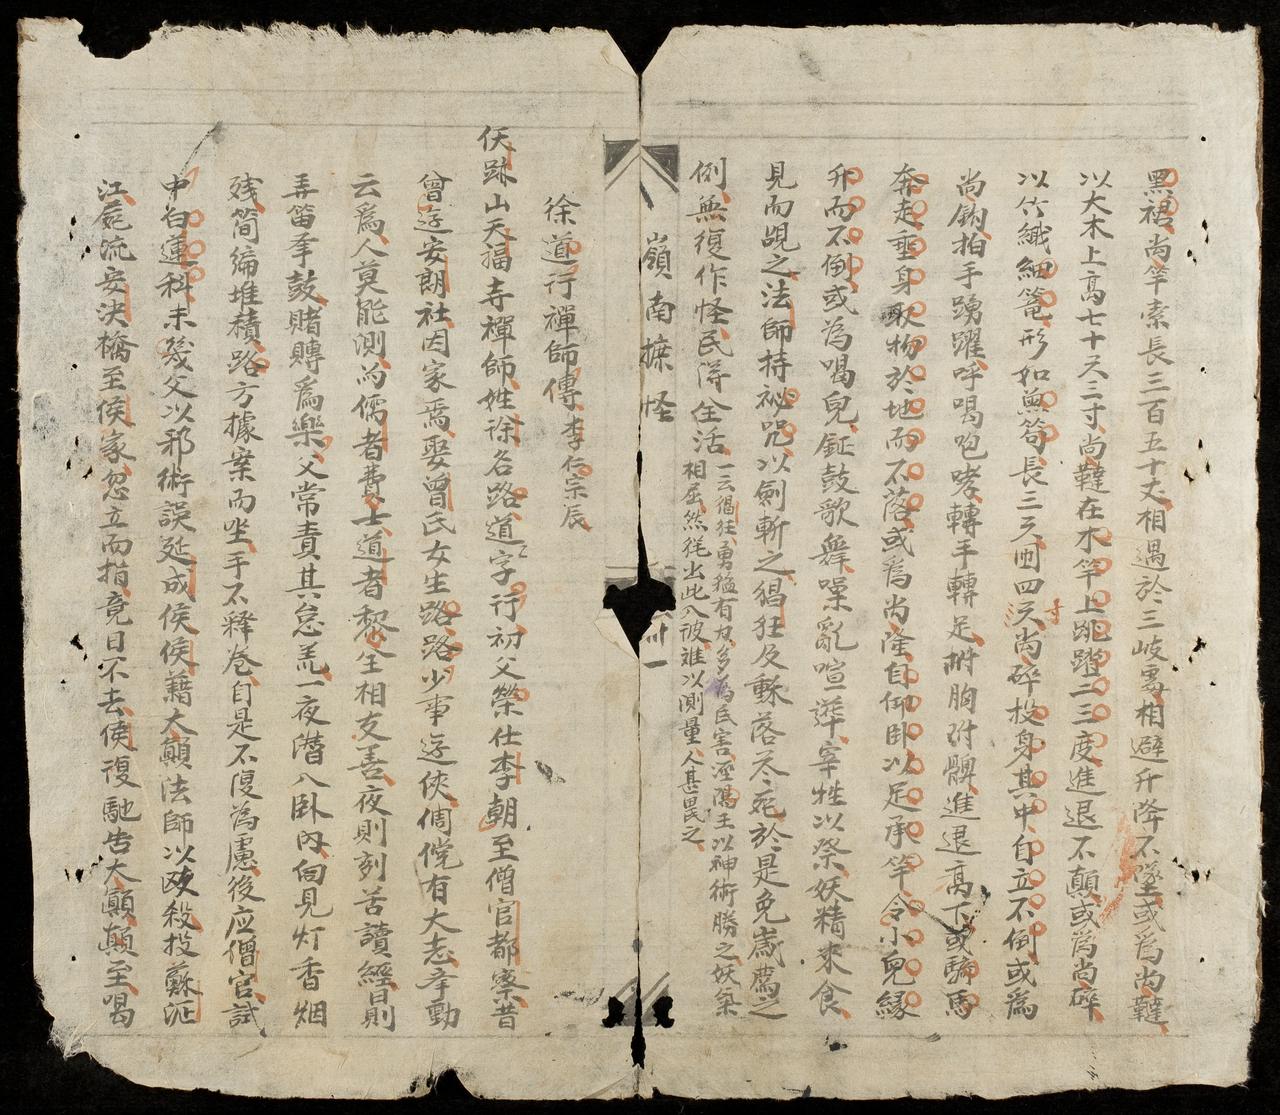 黑裙尚竿索長三百五十丈相遇於三岐處相避升降不墜或為尚韃
以大木上高七十尺三寸尚韃在木竿上跳蹈二三度進退不顛或為尚碎
以竹織細篭形如魚笱長三尺囬四尺尚碎投身其中自立不倒或為
寸
尚鈎拍手踴躍呼喝咆哮轉手轉足拊胸拊髀進退高下或騎馬
奔走垂身取物於地而不落或為尚險自仰臥以足承竿令小兒緣
升而不倒或為喝兒鉦鼓歌舞噪亂喧譁宰牲以祭妖精來食
見而覘之法師持祕咒以劍斬之猖狂及夥落尽死於是免歲薦之
例無復作怪民淂全活
一云猖狂勇猛有力多為民害涇陽王以神術勝之妖氣
相屈然徃出此入彼难以測量人甚畏之
嶺南摭怪
卅一
徐道行禪師傳李仁宗辰
仸跡山天福寺禪師姓徐名路道字行初父榮仕李朝至僧官都察昔
曾逰安朗社因家焉娶曾氏女生路路少事逰俠倜儻有大志牽動
云爲人莫能測而儒者費士道者黎全相友善夜則刻苦讀經日則
弄笛牽鼓賭博爲樂父常責其怠荒一夜潛入臥內向見灯香烟
残简编堆積路方據案而坐手不釋卷自是不復為慮後应僧官試
中白蓮科未幾父以邪術誤延成侯侯藉大顛法師以殴殺投蘇江
江屍流安決橋至侯家忽立而指竟日不去侯復馳告大顛顛至喝